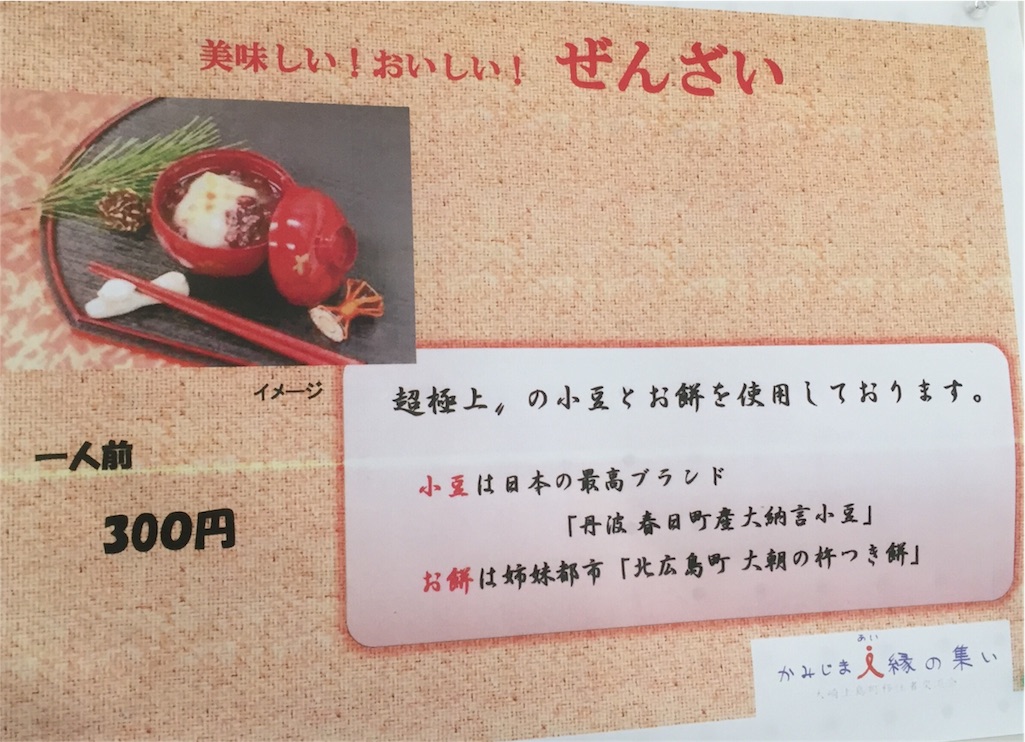 美味しい！おいしい！ ぜんざい
イメージ
一人前
300円
超極上〟の小豆とお餅を使用しております。
小豆は日本の最高ブランド
「丹波 春日町産大納言小豆」
お餅は姉妹都市「北広島町 大朝の杵つき餅」
あい
かみじまi縁の集い